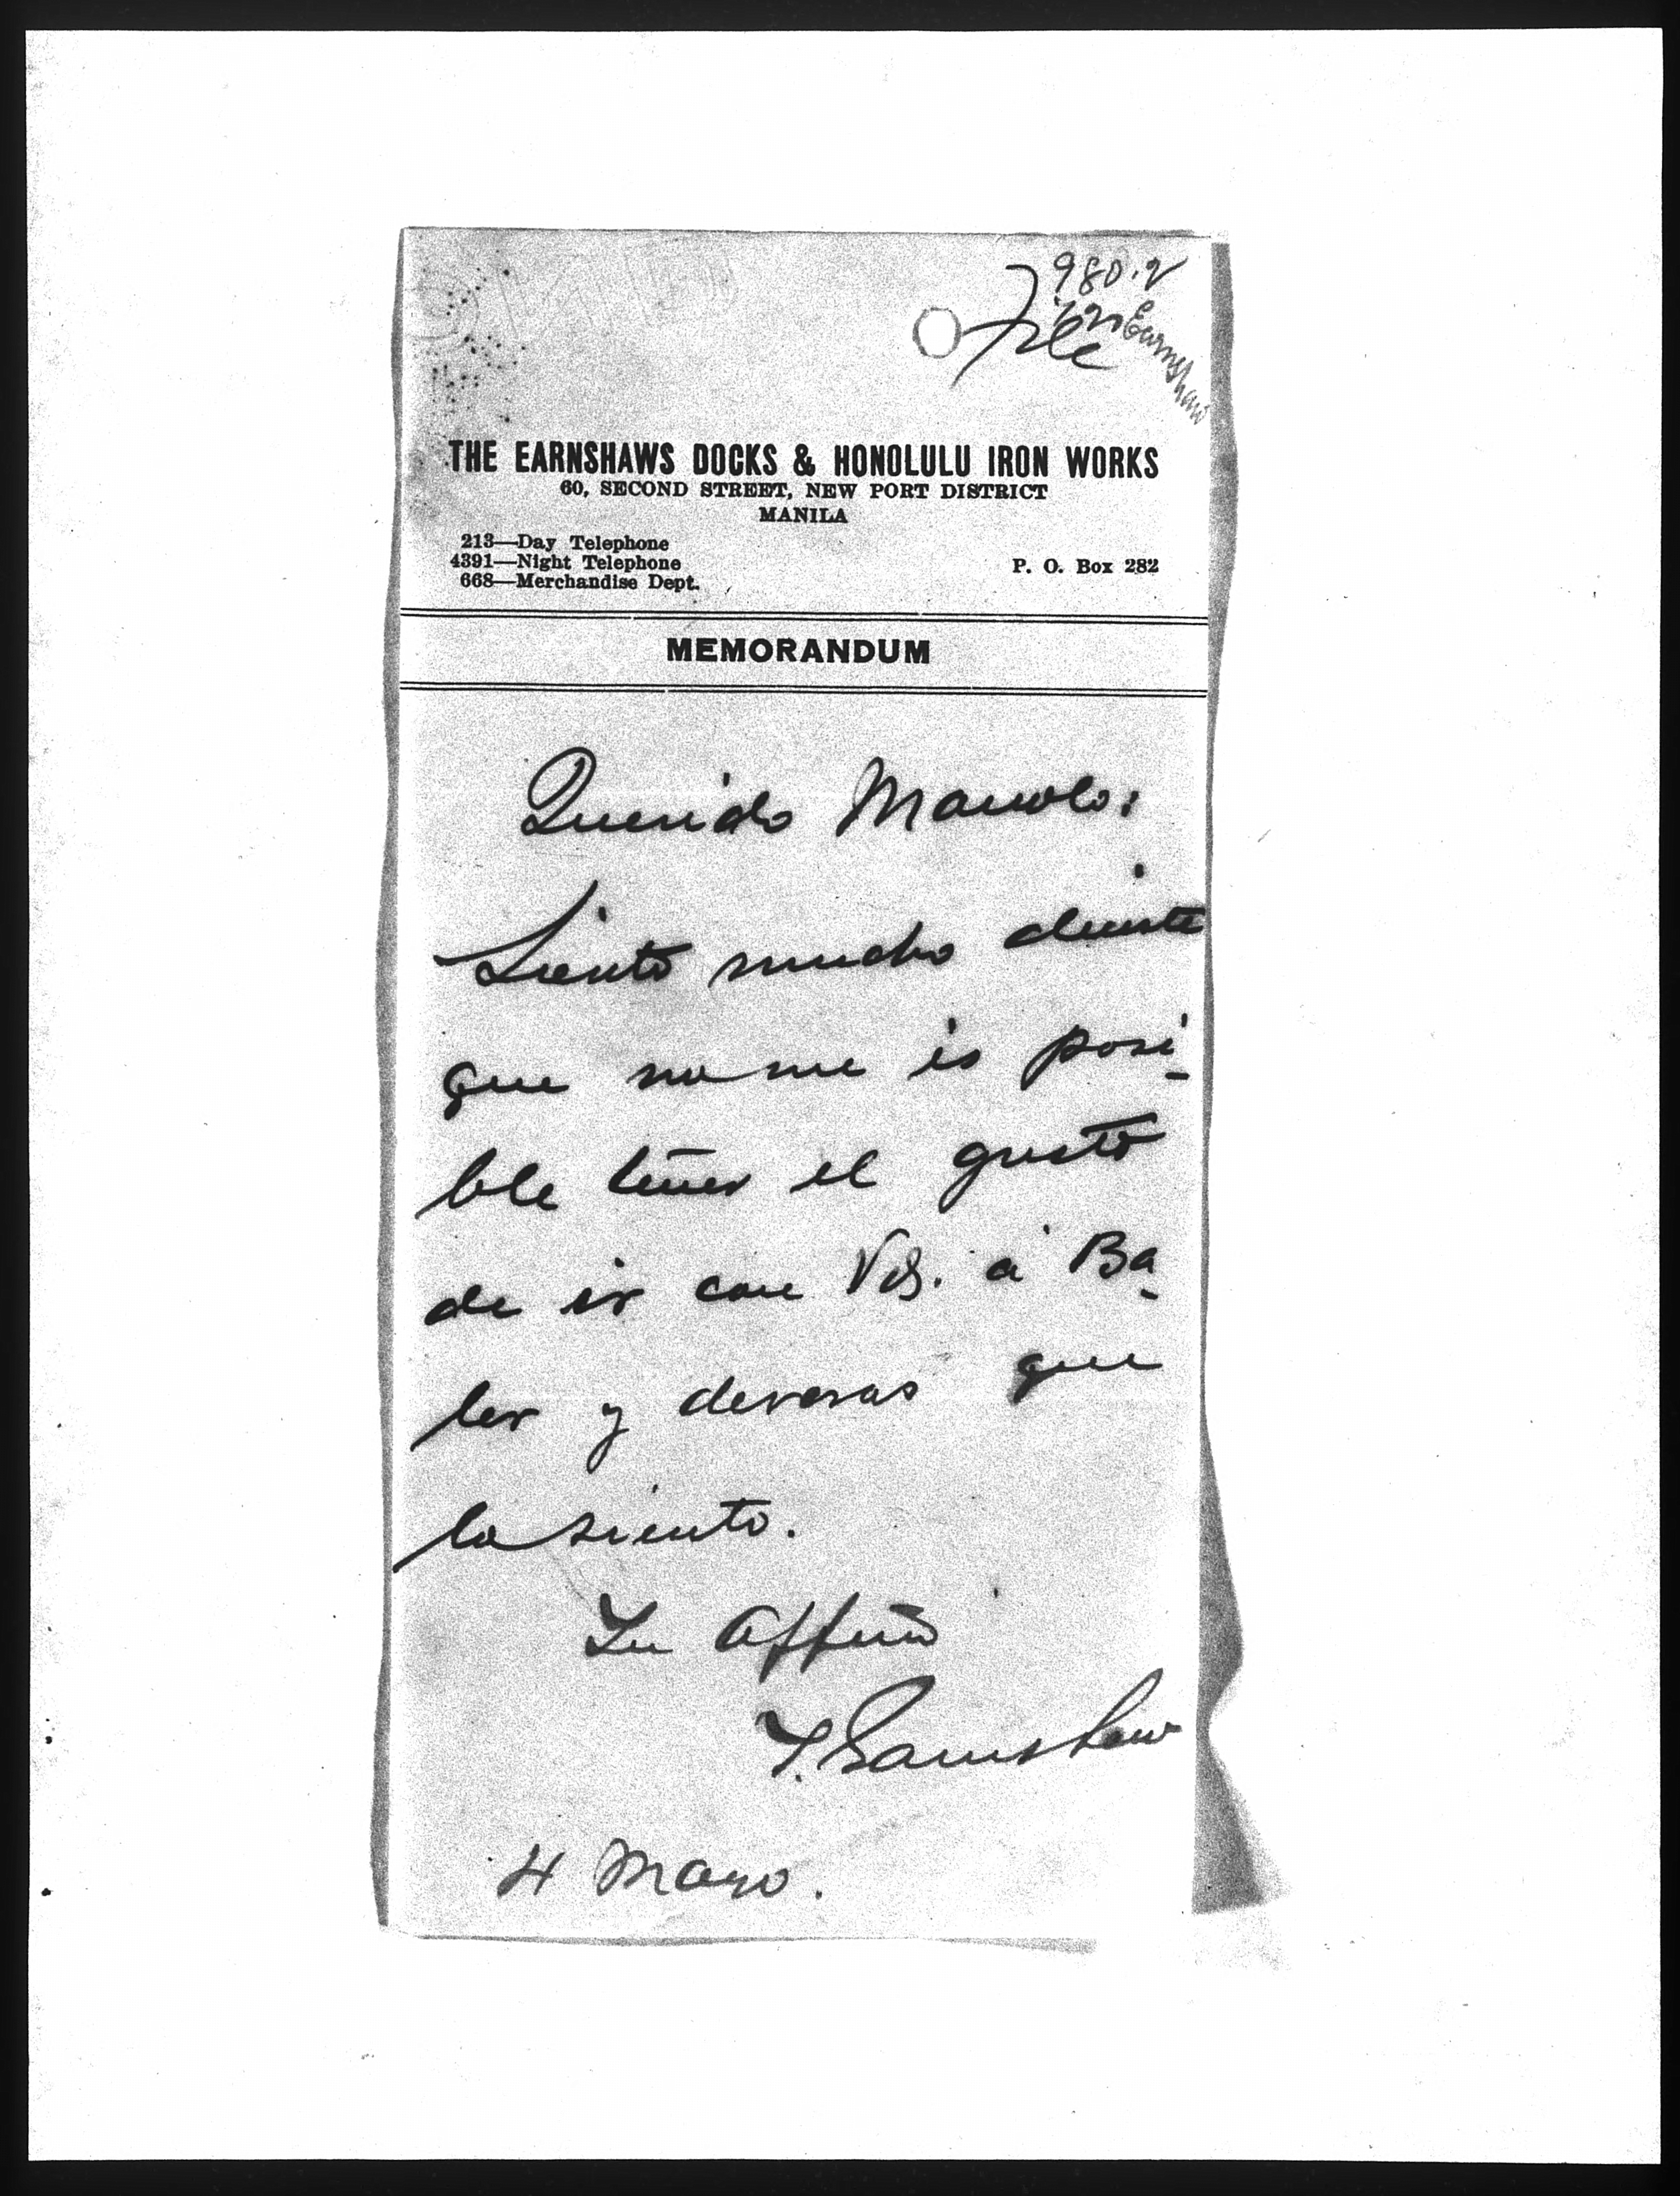 980.2
File
Earnshaw
THE EARNSHAWS DOCKS & HONOLULU IRON WORKS
60, SECOND STREET, NEW PORT DISTRICT
MANILA
213—Day Telephone
4391—Night Telephone
668—Merchandise Dept.
P. O. Box 282
MEMORANDUM
Querido Manolo:
Siento mucho decirte
que no me es posi-
ble tener el gusto
de ir con Vds. á Ba-
ler y deveras que
lo siento.
Tu Affmo
T. Earnshaw
4 Mayo.